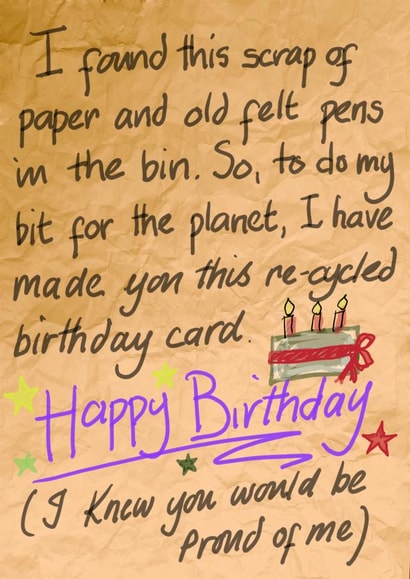 I found this scrap of
paper and old felt pens
in the bin. So, to do my
bit for the planet, I have
made you this re-cycled
birthday card.
Happy Birthday
(I knew you would be
proud of me)